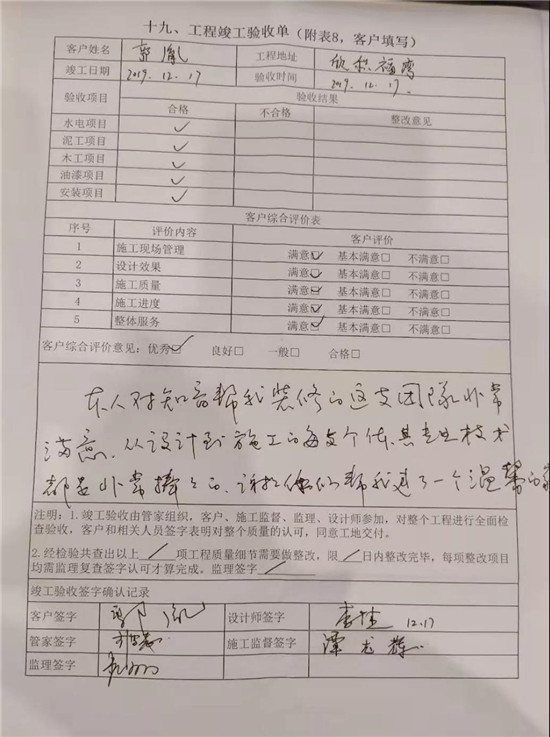 十九、工程竣工验收单（附表8，客户填写）
客户姓名 工程地址
竣工日期 2019.12.17 验收时间 2019.12.17.
验收项目 验收结果
合格 不合格 整改意见
水电项目 ✓
泥工项目 ✓
木工项目 ✓
油漆项目 ✓
安装项目 ✓
客户综合评价表
序号 评价内容 客户评价
1 施工现场管理 满意☑ 基本满意□ 不满意□
2 设计效果 满意☑ 基本满意□ 不满意□
3 施工质量 满意☑ 基本满意□ 不满意□
4 施工进度 满意☑ 基本满意□ 不满意□
5 整体服务 满意☑ 基本满意□ 不满意□
客户综合评价意见：优秀☑ 良好□ 一般□ 合格□
本人对知音帮我装修的这支团队非常
满意，从设计到施工的每支个体，其专业技术
都是非常棒的，谢谢你们帮我建了一个温馨的家
注明：1.竣工验收由管家组织，客户、施工监督、监理、设计师参加，对整个工程进行全面检
验收，客户和相关人员签字表明对整个质量的认可，同意工地交付。
2.经检验共查出以上 / 项工程质量细节需要做整改，限 / 日内整改完毕，每项整改项目
均需监理复查签字认可才算完成。监理签字 /
竣工验收签字确认记录
客户签字 设计师签字 12.17
管家签字 施工监督签字 谭龙辉
监理签字